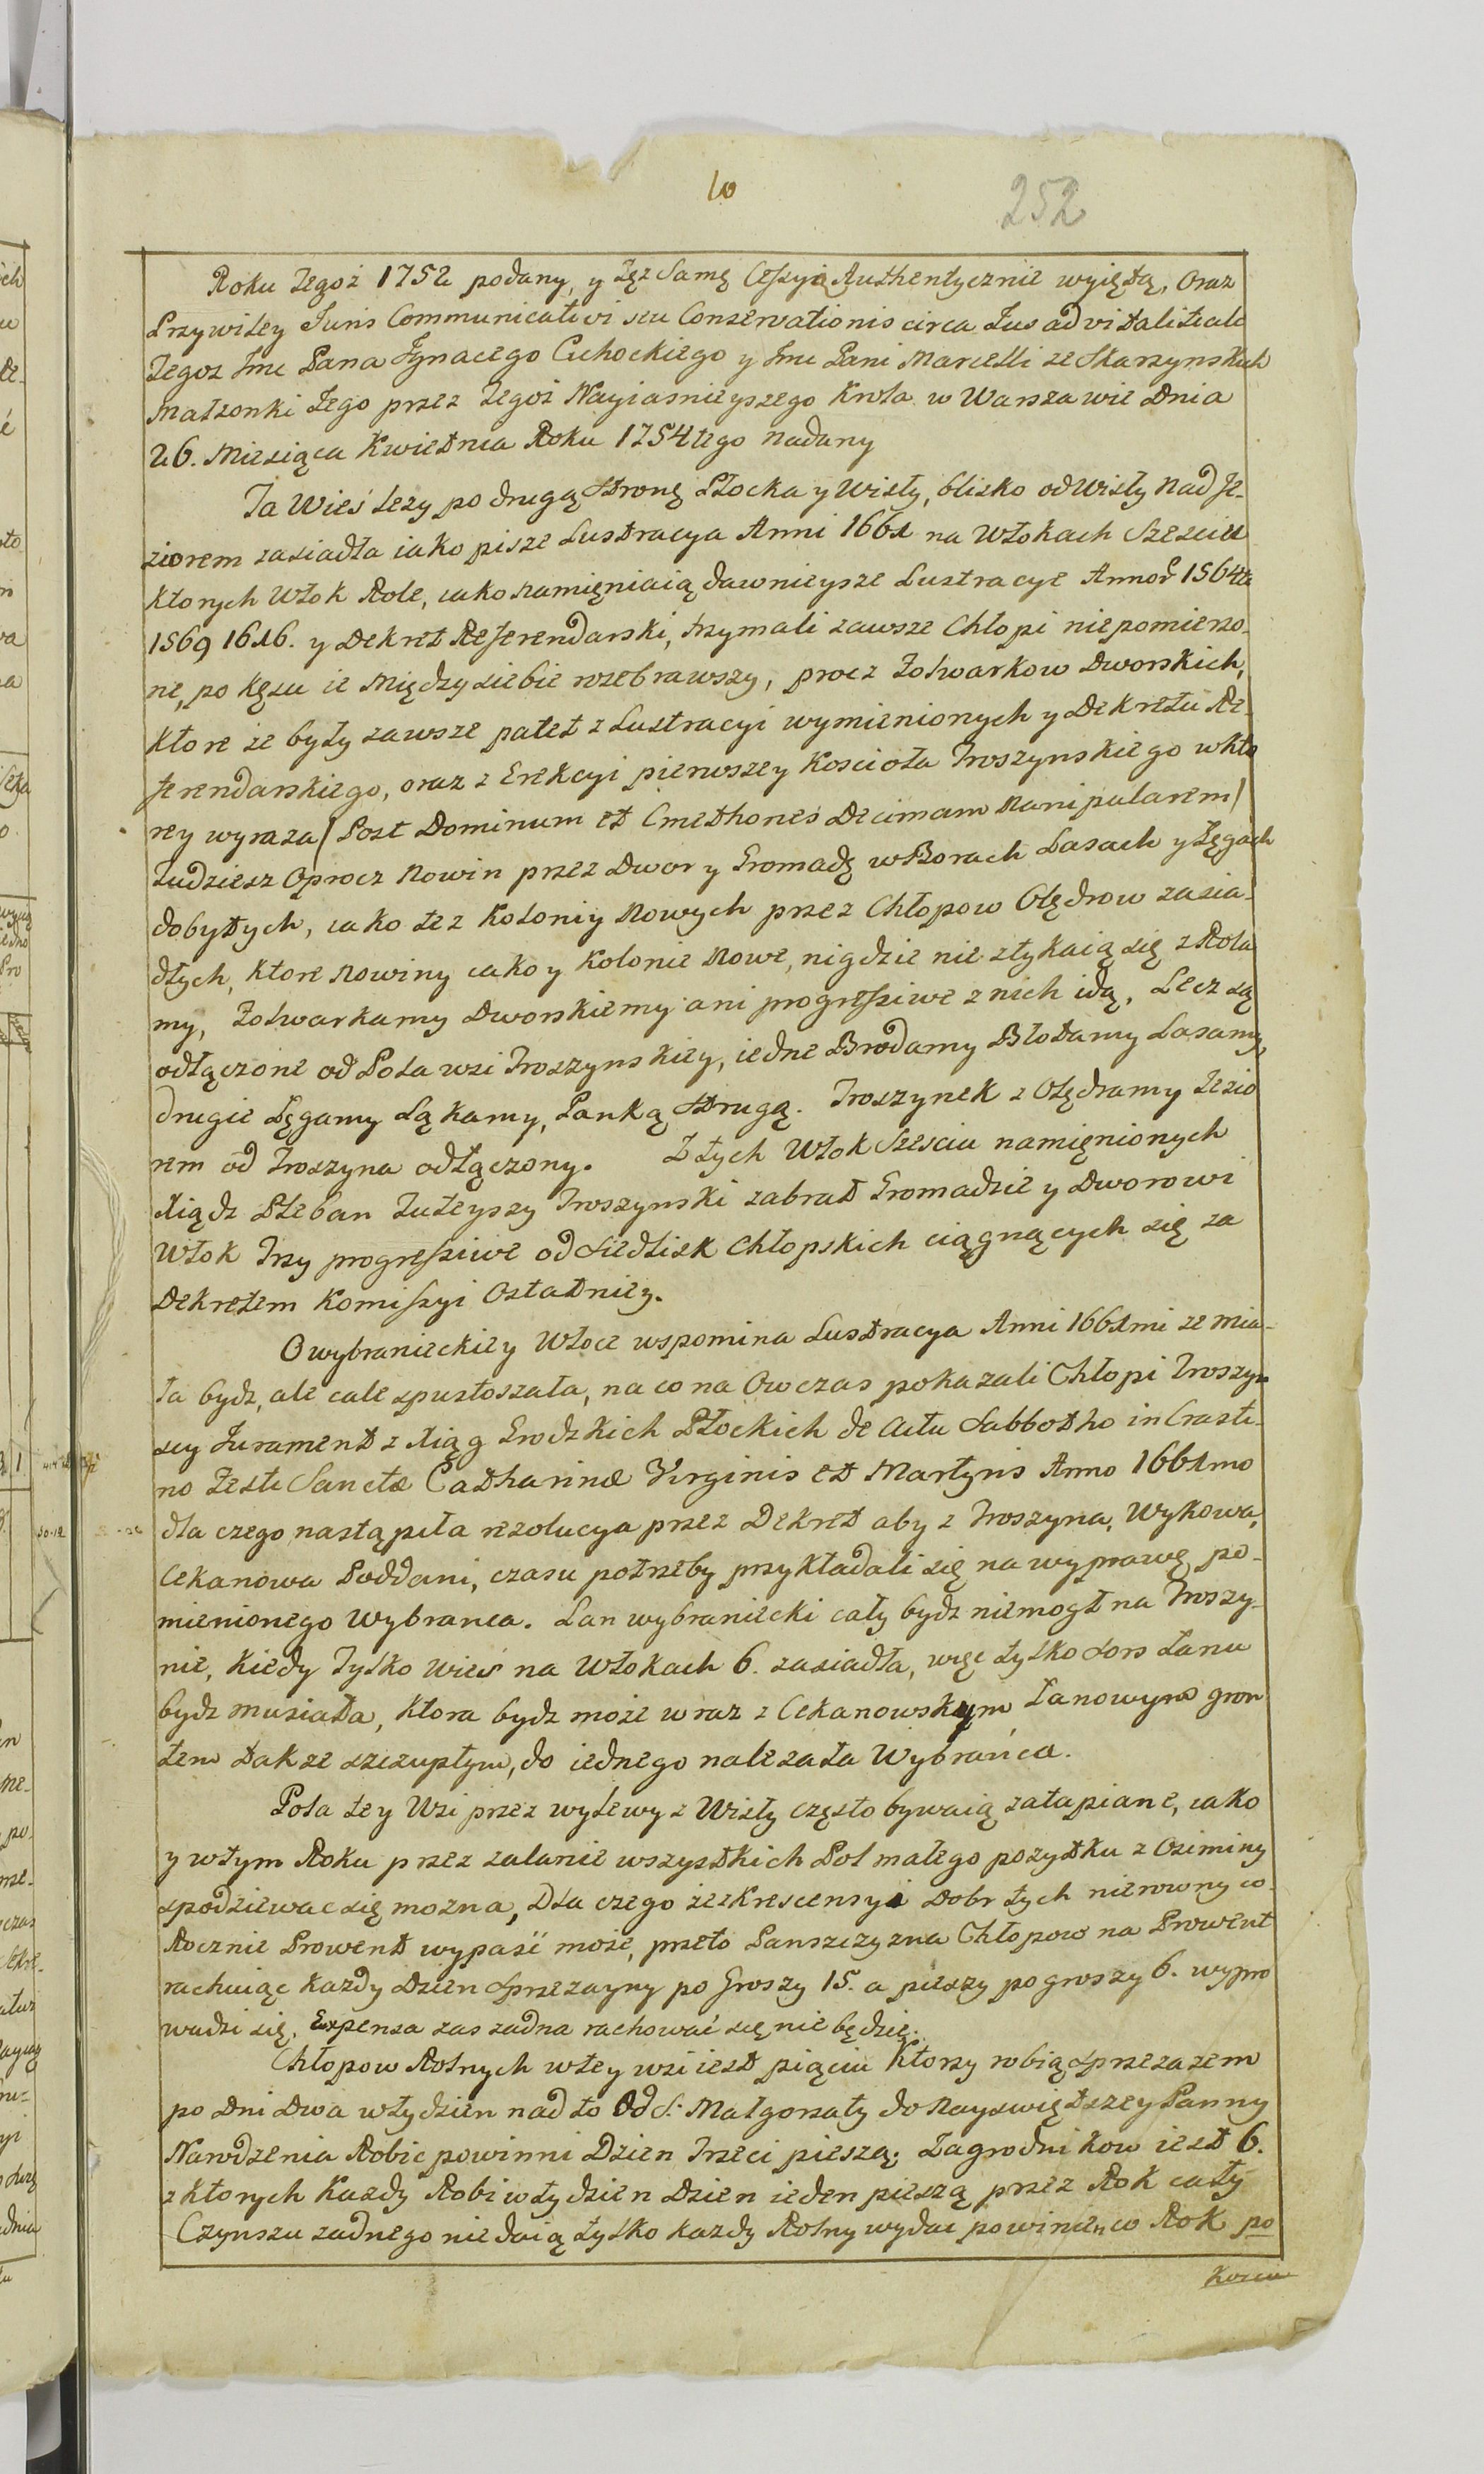 10
252
Roku tegoż 1752 podany, y tęż Samę Cessyią Authentycznie wyiętą, Oraz
Przywiley Juris Communicativi seu Conservationis circa Jus advitalitale
tegoż Jmc Pana Jgnacego Cichockiego y Jmc Pani Marcelli ze Skarzynskich
Małzonki Jego przez tegoż Nayiasnieyszego Krola w Warszawie Dnia
26. Miesiąca Kwietnia Roku 1754tego nadany
Ta Wieś lezy po drugą stronę Płocka y Wisły, blisko od Wisły nad Je-
ziorem zasiadła iako pisze Lustracya Anni 1661 na Włokach Szesciu
ktorych Włok Role, iako namięniaią dawnieysze Lustracye Annor 1564ta
1569 1616. y Dekret Referendarski, trzymali zawsze Chłopi niepomierzo-
ne, po kęsu ie między siebie rozebrawszy, procz Folwarkow Dworskich,
ktore ze były zawsze patet z Lustracyi wymienionych y Dekretu Re-
ferendarskiego, oraz z Erekcyi pierwszey Koscioła Troszynskiego w kto
rey wyraza/ Post Dominum et Cmethones Decimam Manipularem/
Tudziesz Oprocz Nowin przez Dwor y Gromadę w Borach Lasach y Łęgach
dobytych, iako tez Koloniy Nowych przez Chłopow Olędrow zasia-
dłych, ktore Nowiny iako y Kolonie Nowe, nigdzie nie stykaią się z Rola
my, Folwarkamy Dworskiemy ani progressive z nich idą, Lecz są
odłączone od Pola wsi Troszynskiey, iedne Brodamy Błotamy Lasamy,
drugie Łęgamy Łąkamy, Łanką Strugą. Troszynek z Olędramy Jezio
rem od Troszyna odłączony. Z tych Włok Szesciu namięnionych
Xiądz Pleban tuteyszy Troszynski zabrał Gromadzie y Dworowi
Włok Trzy progressive od Siedlisk Chłopskich ciągnących się za
Dekretem Komissyi Ostatniey.
O wybranieckiey Włoce wspomina Lustracya Anni 1661mi ze mia-
ła bydz, ale cale spustoszała, na co na Owczas pokazali Chłopi Troszyn
scy Jurament z Xiąg Grodzkich Płockich de Actu Sabbotho in Crasti-
no Festi Sanctæ Catharinæ Virginis et Martyris Anno 1661mo
dla czego nastąpiła rezolucya przez Dekret aby z Troszyna, Wykowa,
Cekanowa Poddani, czasu potrzeby przykładali się na wyprawę po-
mienionego Wybranca. Łan wybraniecki cały bydz niemogł na Troszy-
nie, kiedy tylko Wieś na Włokach 6. zasiadła, więc tylko sors Łanu
bydz musiała, ktora bydz może wraz z Cekanowskym Łanowym grun
tem także szczupłym, do iednego nalezała Wybrańca.
Pola tey Wsi przez wylewy z Wisły często bywaią zatapiane, iako
y w tym Roku przez zalanie wszystkich Pol małego pozytku z Oziminy
spodziewac się mozna, Dla czego że z Krescensyi Dobr tych nierowny co-
Rocznie Prowent wypaść może, przeto Panszczyzna Chłopow na Prowent
rachuiąc każdy Dzien Sprzezayny po Groszy 15. a pieszy po groszy 6. wypro
wadzi się, Expensa zas zadna rachować się nie będzie.
Chłopow Rolnych w tey wsi iest pięciu ktorzy robią sprzezazem
po Dni Dwa w tydzien nad to Od S: Małgorzaty do Nayswiętszey Panny
Narodzenia Robic powinni Dzien Trzeci pieszą; Zagrodnikow iest 6.
z ktorych każdy Robi w tydzien Dzien ieden pieszą przez Rok cały
Czynszu zadnego nie daią tylko kazdy Rolny wydac powinien co Rok po
Korcu